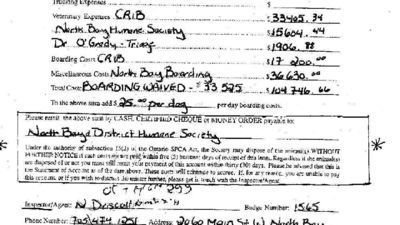 Veterinary Expenses CRIB $33405.34
North Bay Humane Society $15604.44
Dr O'Grady - Triag $1906.88
Boarding Costs CRIB $17 200.00
Miscellaneous Costs North Bay Boarding $36 630.00
Total Costs BOARDING WAIVED - $33 525 $104 746.66
To the above sum add $25.00 per day per day boarding costs.
Please remit the above sum by CASH, CERTIFIED CHEQUE or MONEY ORDER payable to:
North Bay & District Humane Society
Under the authority of subsection 15(2) of the Ontario SPCA Act, the Society may dispose of the animal(s) WITHOUT
FURTHER NOTICE if such costs are not paid within five (5) business days of receipt of this form. Regardless if the animal(s)
are disposed of or not you must still remit payment of this account within thirty (30) days. Please be advised that this is
the Statement of Account as of the date above. These costs will continue to accrue. If, for any reason, you are unable to pay
this account, or if you wish to discuss this matter further, please get in touch with the Inspector/Agent.
Inspector/Agent: N Driscoll Badge Number: 1565
Phone Number: 705/474 1251 Address: 2060 Main St W North Bay